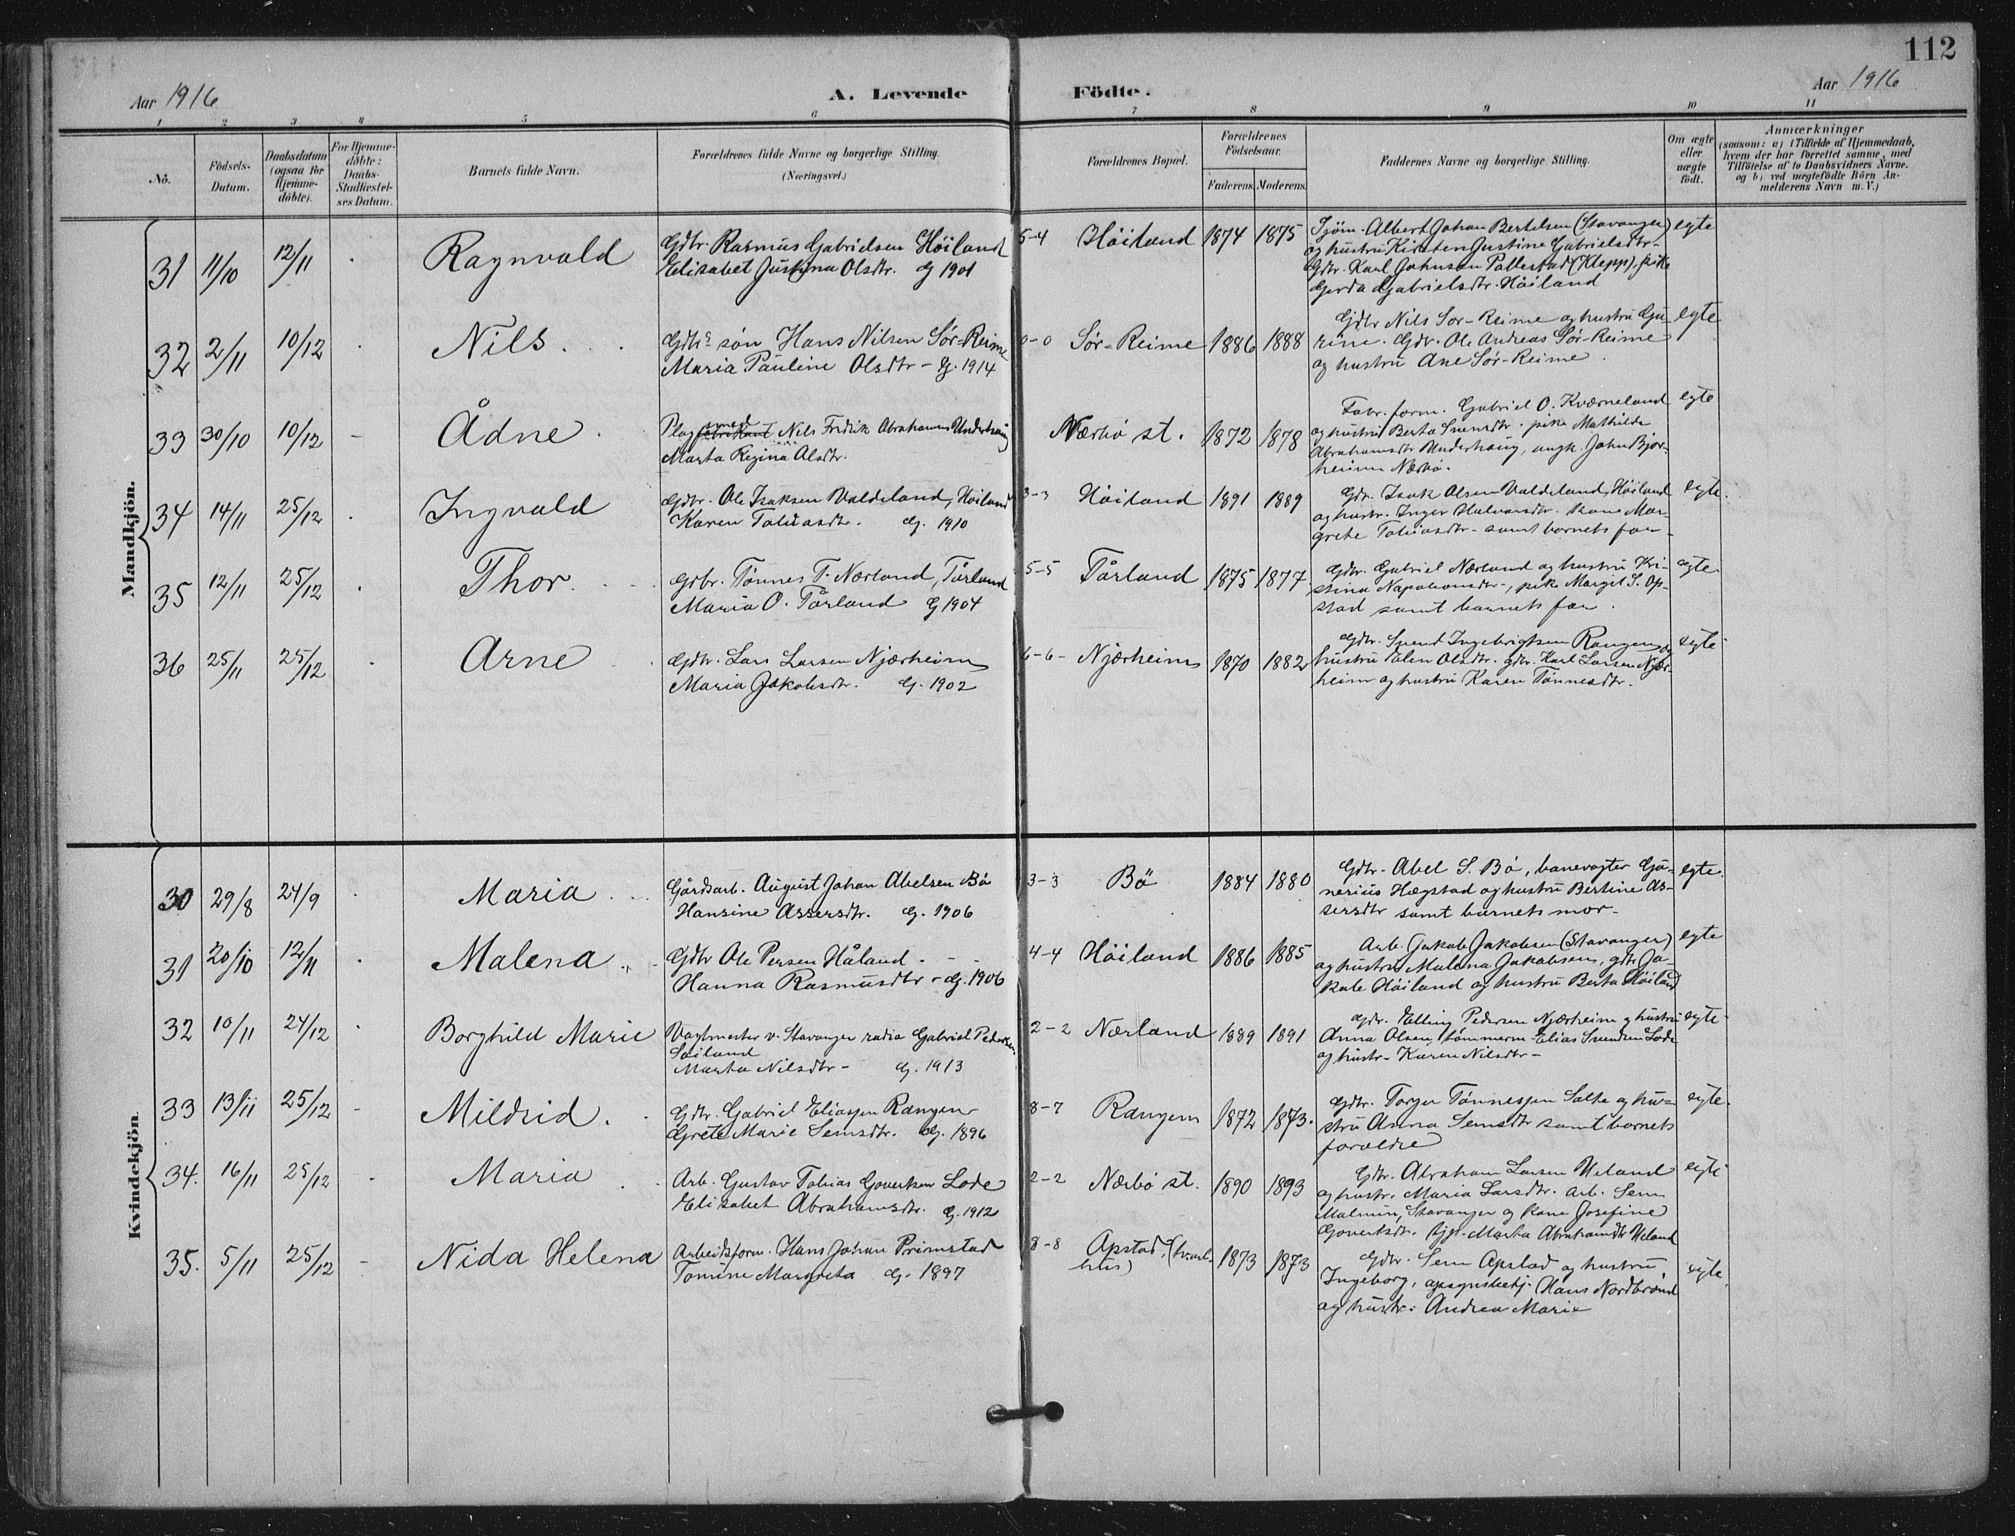 112
Aar 1916
A. Levende Födte.
Aar 1916
1 2 3 4 5 6 7 8 9 10 11
No.
Födsels-Datum.
Daabsdatum (ogsaa for Hjemme-döbte).
For Hjemme-döbte: Daabs-Stadfæstel-ses Datum.
Barnets fulde Navn.
Forældrenes fulde Navne og borgerlige Stilling.
(Næringsvei.)
Forældrenes Bopæl.
Forældrenes Födselsaar.
Faderens. Moderens.
Faddernes Navne og borgerlige Stilling.
Om ægte eller uægte födt.
Anmærkninger
(saasom: a) i Tilfælde af Hjemmedaab,
hvem der har forrettet samme, med
Tilföielse af to Daabsvidners Navne.
og b) ved uægtefödte Börn An-
melderens Navn m. V.)
Mandkjön.
31 11/10 12/11 Ragnvald
Gdbr. Rasmus Gabrielsen Höiland
Elisabet Justina Olsdtr. G 1901
5-4 Höiland 1874 1875
Sjöm. Albert Johan Bertelsen (Stavanger)
og hustru Kirsten Justine Gabrielsdtr-
Gdbr. Karl Johnsen Pollestad (Klepp). pike
Gerda Gabrielsdtr. Höiland
egte
32 2/11 10/12 Nils
Gdbrs søn Hans Nilsen Sør-Reime
Maria Pauline Olsdtr - G. 1914
0-0 Sør-Reime 1886 1888
Gdbr Nils Sør-Reime og hustru Gu-
rine. Gdbr. Ole Andreas Sør-Reime
og hustru Ane Sør-Reime.
egte
33 30/10 10/12 - Ådne
Plogsmed Nils Fredrik Abrahamsen Underhaug
Marta Regina Olsdtr.
Nærbø st. 1872 1878
Fabr. form. Gabriel O. Kværneland
og hustru Berta Svensdtr. pike Mathilde
Abrahamsdtr Underhaug, ungk. John Bjor-
heim Nærbø.
egte
34 14/11 25/12 Ingvald
Gdbr. Ole Isaksen Valdeland, Höiland
Karen Tobiasdtr. G. 1910
3-3 Höiland 1891 1889
Gdr. Isak Olsen Valdeland, Höiland
og hustr. Inger Halvorsdtr. kone Mar-
grete Tobiasdtr - samt barnets far -
egte.
35 12/11 25/12 Thor.
Gdbr. Tønnes T. Nærland, Tårland
Maria O. Tårland G 1904
5-5 Tårland 1875 1877
Gdbr. Gabriel Nærland og hustru Kri-
stina Napoleonsdtr-, pike Margit S. Op-
stad samt barnets far.
egte.
36 25/11 25/12 Arne
Gdbr. Lars Larsen Njærheim
Maria Jakobsdtr. G. 1902
6-6- Njærheim 1870 1882
Gdbr. Svend Ingebrigtsen Rangen og
hustru Malen Olsdtr. gdbr. Karl Larsen Njær-
heim og hustru Karen Tønnesdtr.
egte
Kvindekjön.
30 29/8 24/9 Maria
Gårdsarb. August Johan Abelsen Bö
Hansine Assersdtr. G. 1906
3-3 Bö 1884 1880
Gdbr. Abel S. Bö, banevogter Gu-
nerius Hægstad og hustru Bertine As-
sersdtr samt barnets mor-
egte.
31 20/10 12/11 Malena
Gdbr Ole Persen Håland -
Hanna Rasmusdtr - G. 1906
4-4 Höiland 1886 1885
Arb. Jakob Jakobsen (Stavanger)
og hustru Malena Jakobsen, gdbr. Ja-
kob Höiland og hustru Berta Höiland
egte
32 10/11 24/12 Borghild Marie
Vagtmester v. Stavanger radio Gabriel Pedersen
Soiland
Marta Nilsdtr - G. 1913
2-2 Nærland 1889 1891
Gdr. Elling Pedersen Njærheim og hustru
Anna Olsen, tømmerm. Elias Svendsen Lode
og hustr- Karen Nilsdtr -
egte
33 13/11 25/12 - Mildrid.
Gdbr. Gabriel Eliassen Rangen
Grete Marie Semsdtr. G. 1896
8-7 Rangen 1872 1873.
Gdbr. Torger Tønnessen Salte og hu-
stru Anna Semsdtr samt barnets
foreldre
egte.
34. 16/11 25/12 - Maria
Arb. Gustav Tobias Govertsen Lode
Elisabet Abrahamsdtr. G. 1912
2-2 Nærbø st. 1890 1893
Gdbr. Abraham Larsen Ueland
og hustr. Maria Larsdtr. arb. Sem
Malmin, Stavanger og kone Josefine
Govertsdtr. Marta Abrahamsdtr Ueland
egte
35. 5/11 25/12 - Nida Helena
Arbeidsform. Hans Johan Primstad
Tomine Margreta G. 1897
8-8 Opstad, (tvangs-
hus) 1873 1873
Gdbr. Sem Opstad og hustru
Ingeborg, opsynsbetj. Hans Nordbrønd
og hustr: Andrea Marie
egte.